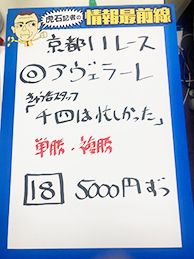 虎石記者の
情報最前線
京都11レース
◎アヴェラーレ
きゅう舎スタッフ
「千四は忙しかった」
単勝・複勝
18 5000円ずつ